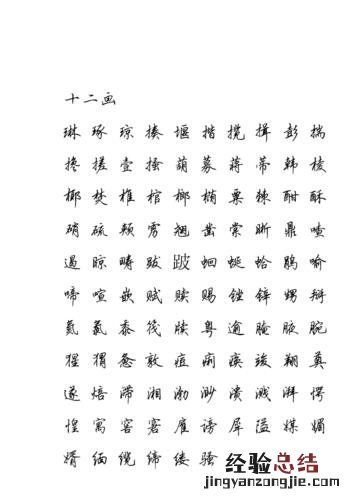 十二画
琳 琢 琼 揍 堰 揩 揽 揖 彭 揣
搀 搓 壹 搔 葫 募 蒋 蒂 韩 棱
椰 焚 椎 棺 榔 椭 粟 棘 酣 酥
硝 硫 颊 雳 翘 凿 棠 晰 鼎 喳
遏 晾 畴 跋 跛 蛔 蜒 蛤 鹃 喻
啼 喧 嵌 赋 赎 赐 锉 锌 甥 掰
氮 氯 黍 筏 牍 粤 逾 腌 腋 腕
猩 猬 惫 敦 痘 痢 痪 竣 翔 奠
遂 焙 滞 湘 渤 渺 溃 溅 湃 愕
惶 寓 窖 窘 雇 谤 犀 隘 媒 媚
婿 缅 缆 缔 缕 骚
经验总结
jingyanzongjie.com